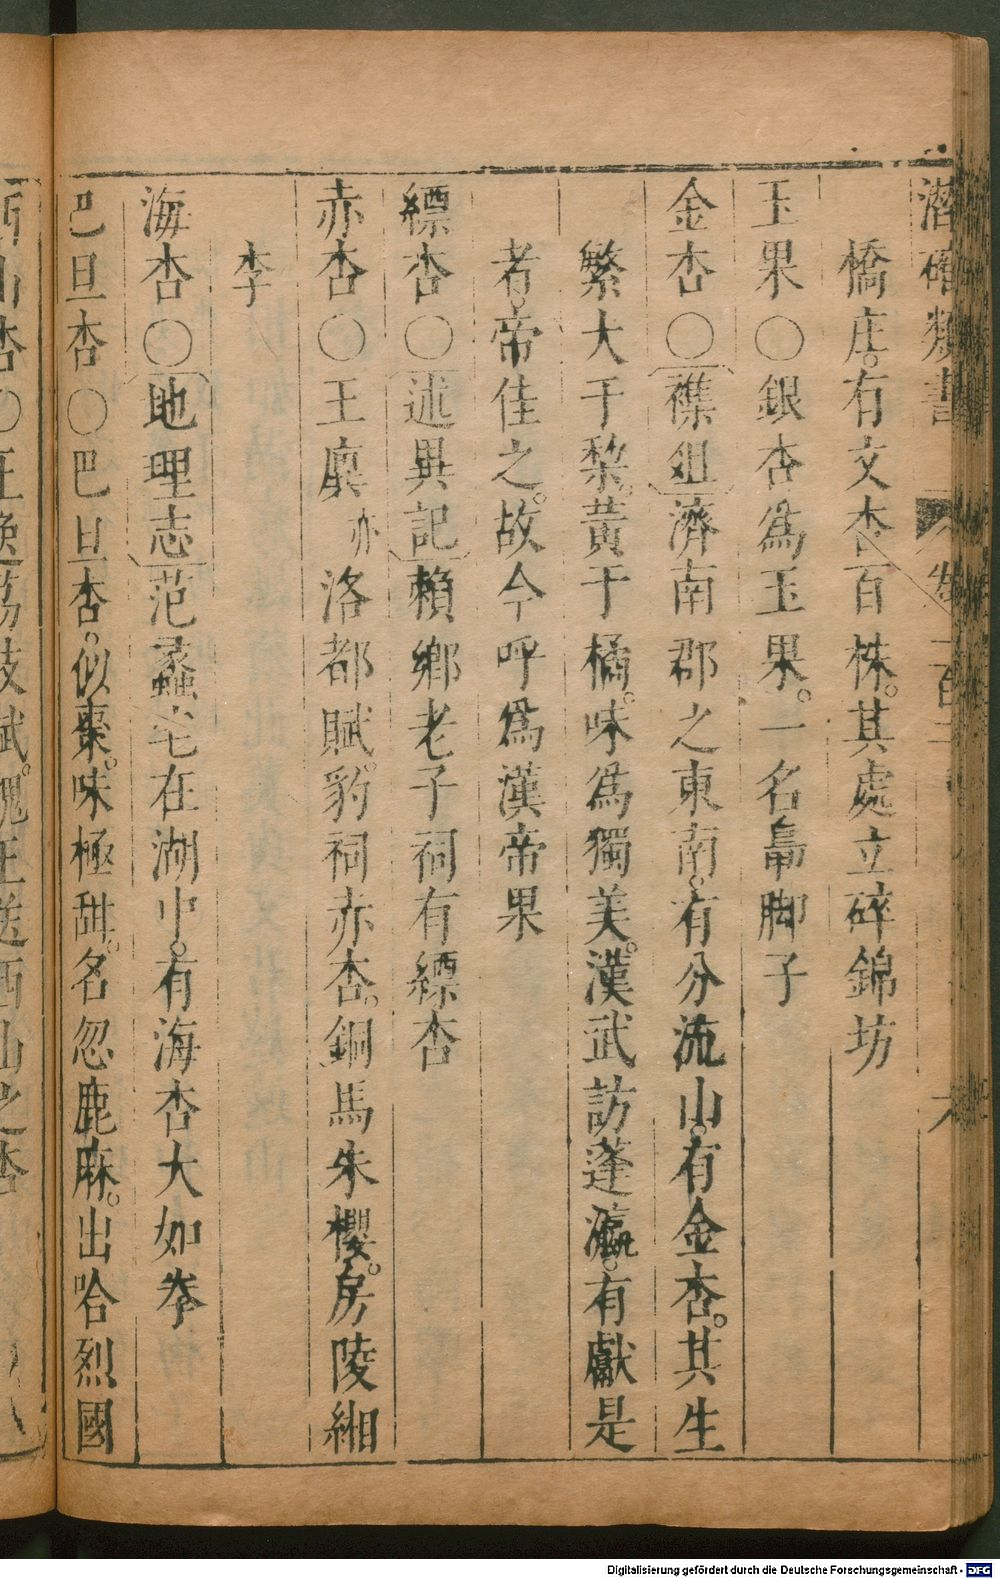 潛確類書
橋庄。有文杏百株。其處立碎錦坊
玉果○銀杏爲玉果。一名鳧脚子
金杏○襍俎濟南郡之東南。有分流山。有金杏。其生
繁大于黎。黃于橘。味爲獨美。漢武訪蓬瀛。有獻是
者。帝佳之。故今呼爲漢帝果
縹杏○述異記賴鄉老子祠有縹杏
赤杏○王廙亦洛都賦。豹祠亦杏。銅馬朱櫻。房陵緗
李
海杏○地理志范蠡宅在湖中。有海杏大如拳
巴旦杏○巴旦杏。似棗。味極甜。名忽鹿麻。出哈烈國
西山杏○王逸荔枝賦。魏王送西山之杏
Digitalisierung gefördert durch die Deutsche Forschungsgemeinschaft - DFG